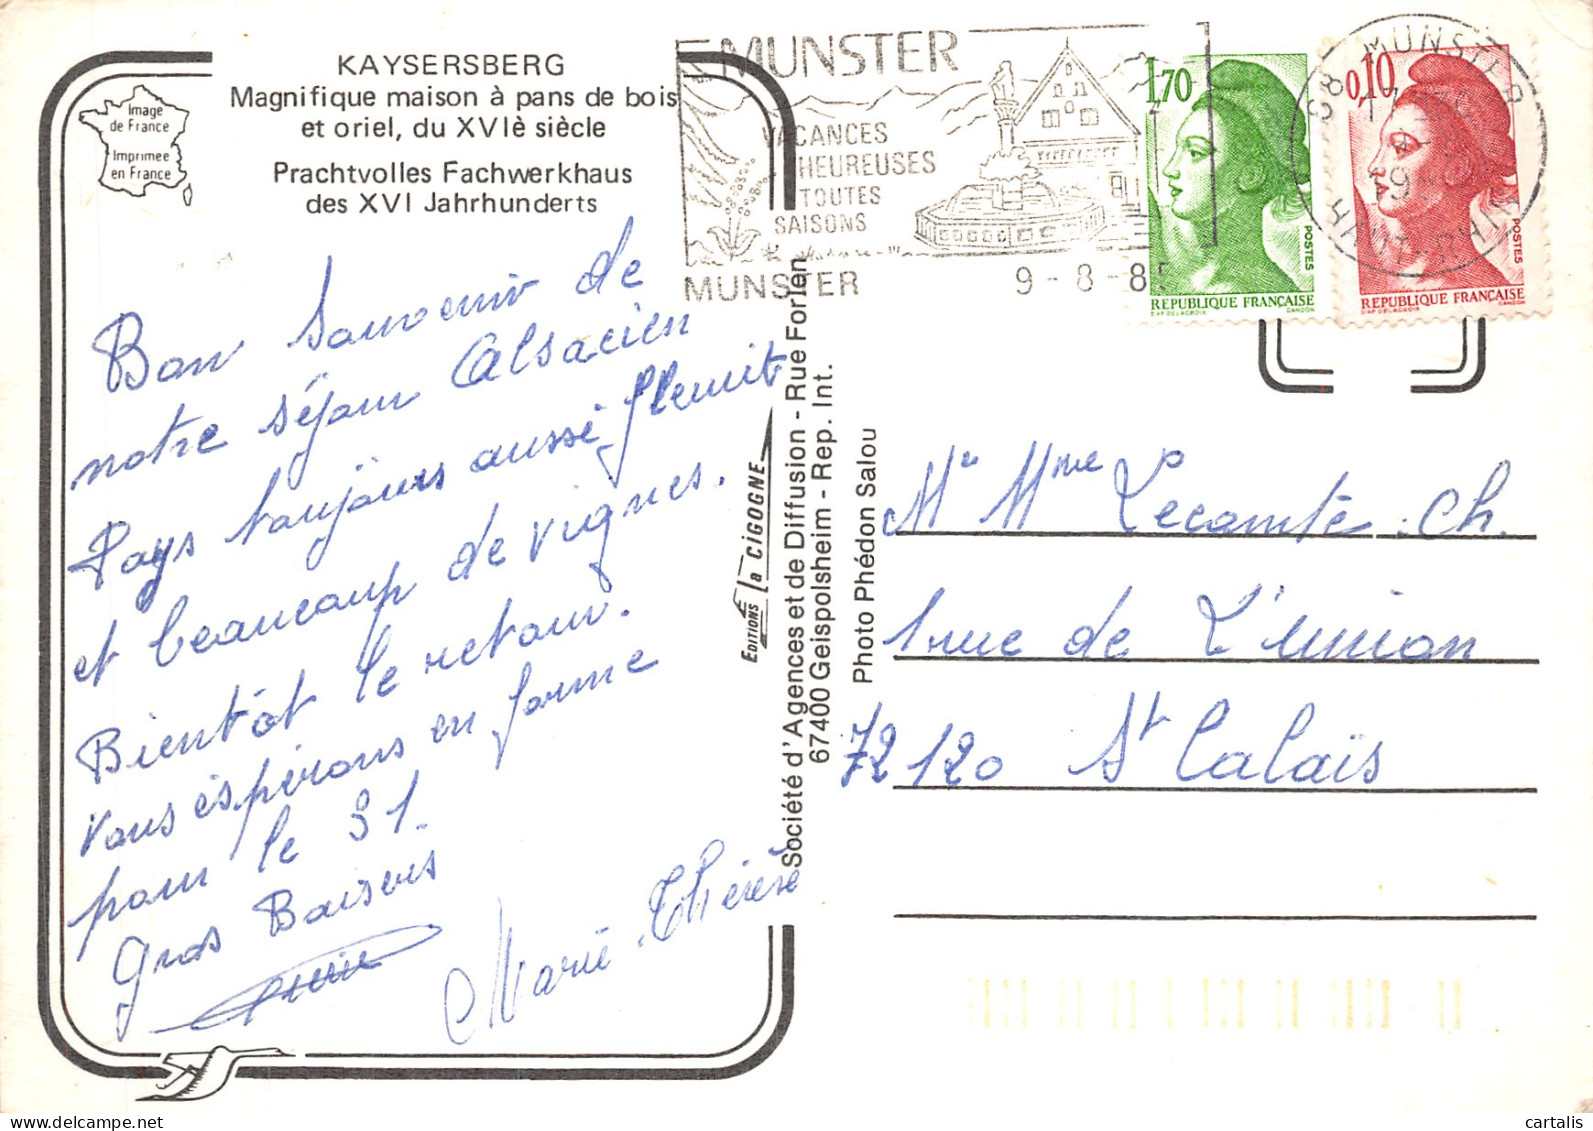 KAYSERSBERG
Magnifique maison à pans de bois
et oriel, du XVIè siècle
Prachtvolles Fachwerkhaus
des XVI Jahrhunderts
Image
de France
Imprimée
en France
Bon Souvenir de
notre séjour Alsacien
Pays toujours aussi fleurit
et beaucoup de vignes.
Bientôt le retour.
Vous éspérons en forme
pour le 31.
Gros Baisers
Marie-Thérèse
MUNSTER
VACANCES
HEUREUSES
TOUTES
SAISONS
MUNSTER
9-8-85
1,70
POSTES
REPUBLIQUE FRANÇAISE
D'AP. DELACROIX GANDON
0,10
POSTES
REPUBLIQUE FRANÇAISE
D'AP. DELACROIX GANDON
68 MUNSTER
HAUT-RHIN
EDITIONS la CIGOGNE
Société d'Agences et de Diffusion - Rue Forlen
67400 Geispolsheim - Rep. Int.
Photo Phédon Salou
Mr Mme Lecomte Ch.
1 rue de L'union
72120 St Calais
cartalis delcampe.net